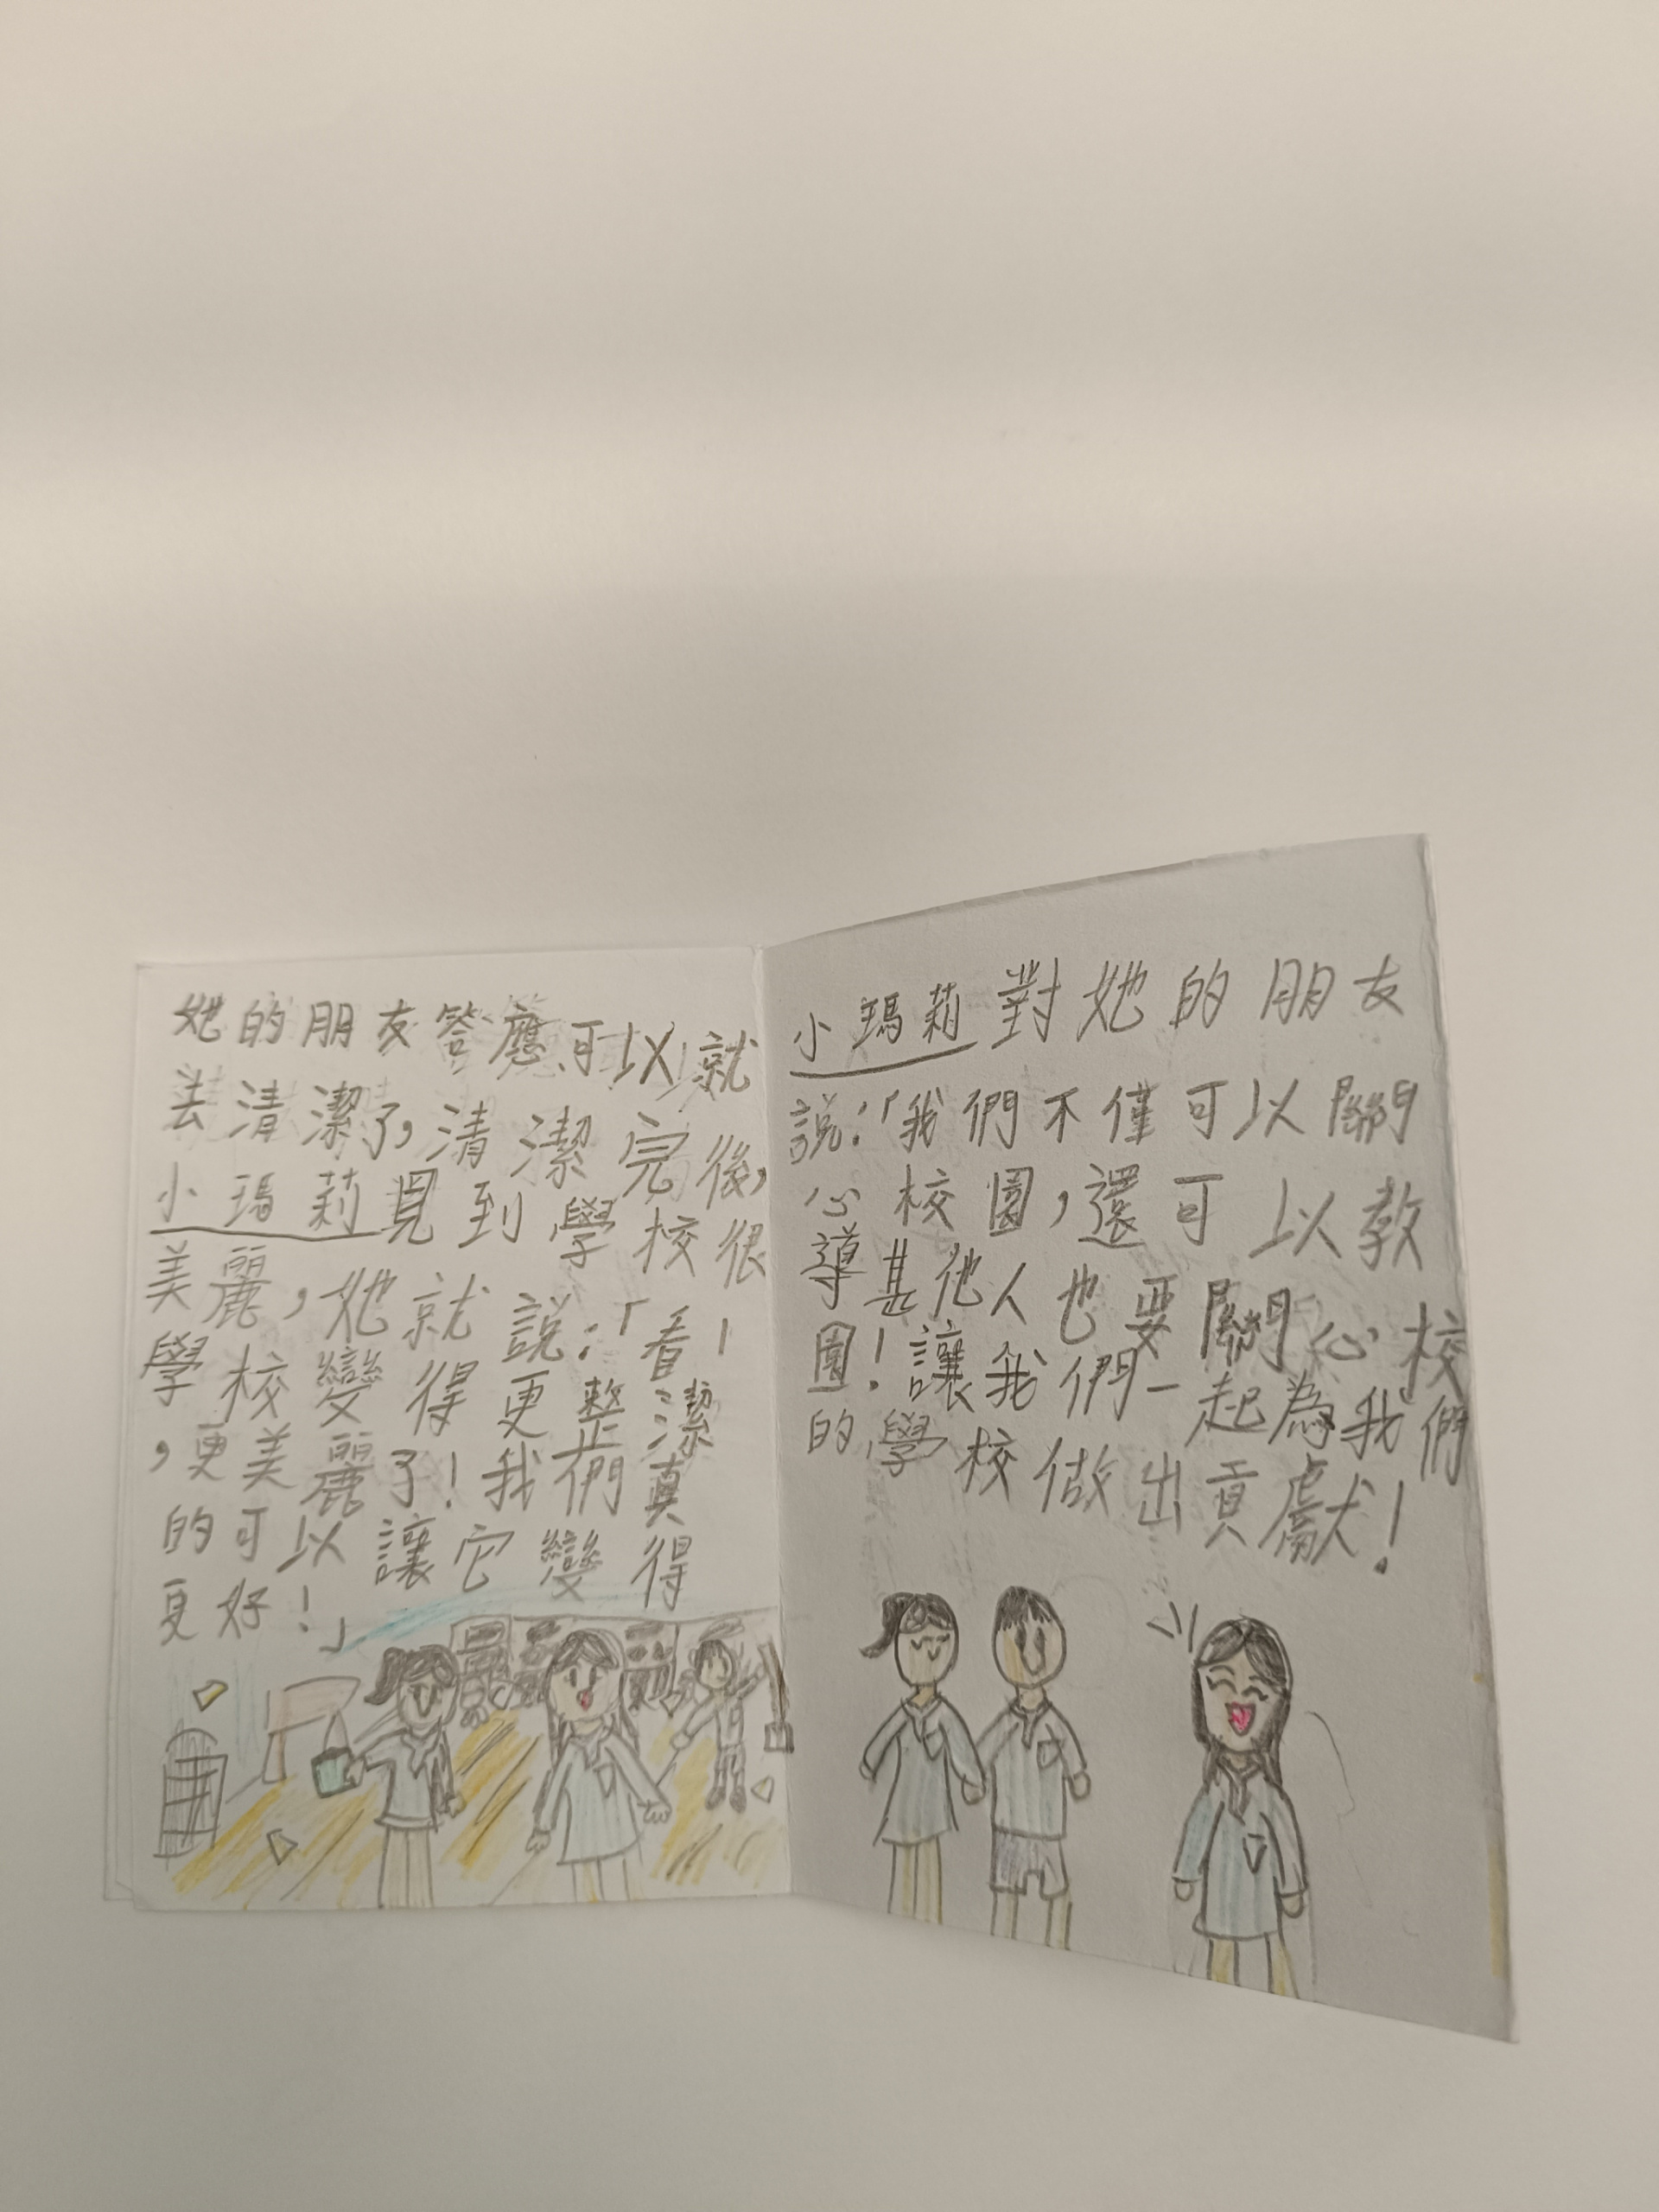 她的朋友答應可以就
去清潔了,清潔完後,
小瑪莉見到學校很
美麗,她就說:「看!
學校變得更整潔
,更美麗了!我們真
的可以讓它變得
更好!」
小瑪莉對她的朋友
說:「我們不僅可以關
心校園,還可以教
導其他人也要關心校
園!讓我們一起為我們
的學校做出貢獻!